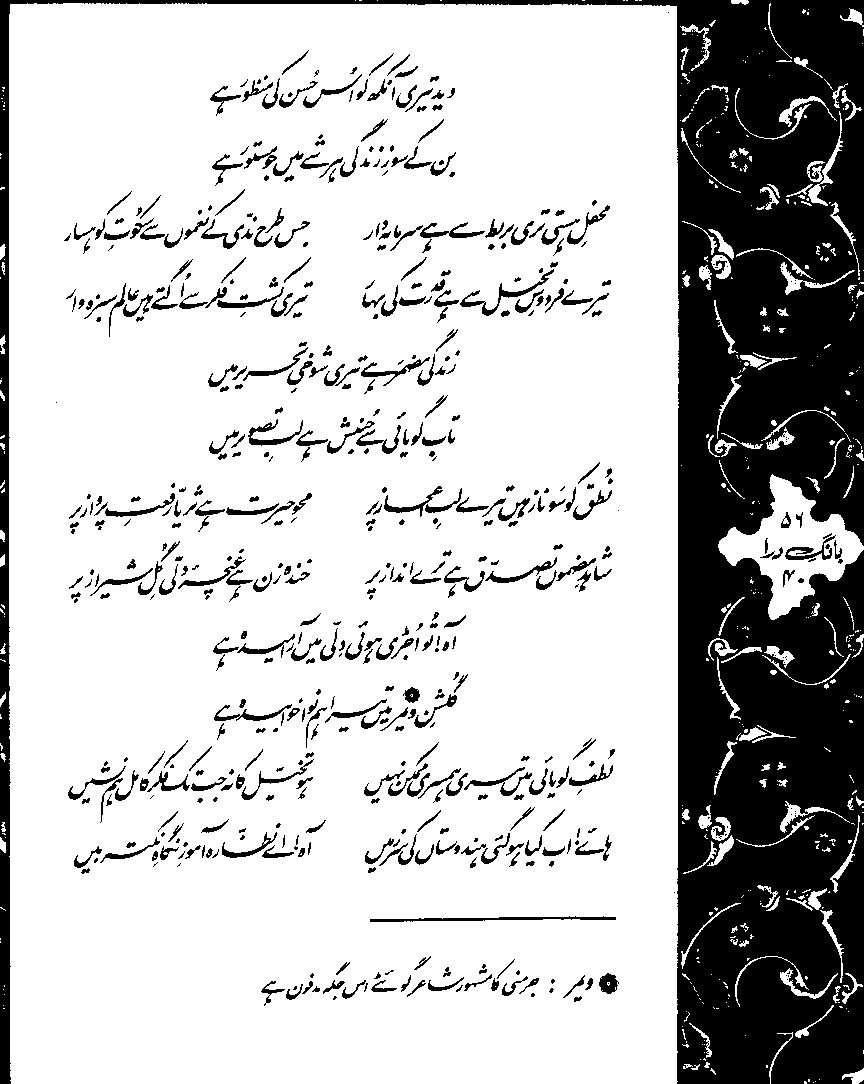 دید تیری آنکھ کو اُس حُسن کی منظور ہے
بن کے سوزِ زندگی ہر شے میں جو مستور ہے
محفلِ ہستی تری بربط سے ہے سرمایہ دار جس طرح ندّی کے نغموں سے سکُوتِ کوہسار
تیرے فردوسِ تخیّل سے ہے قدرت کی بہار تیری کشتِ فکر سے اُگتے ہیں عالم سبزہ وار
زندگی مضمَر ہے تیری شوخیِ تحریر میں
تابِ گویائی سے جُنبش ہے لبِ تصویر میں
نُطق کو سَو ناز ہیں تیرے لبِ اعجاز پر محوِ حیرت ہے ثریّا رفعتِ پرواز پر
شاہدِ مضموں تصدّق ہے ترے انداز پر خندہ زن ہے غنچۂ دلّی گُلِ شیراز پر
آہ! تُو اُجڑی ہوئی دلّی میں آرامیدہ ہے
گُلشنِ ویمر میں تیرا ہم نوا خوابیدہ ہے
لُطفِ گویائی میں تیری ہمسری ممکن نہیں ہو تخیّل کا نہ جب تک فکرِ کامل ہم نشیں
ہائے! اب کیا ہو گئی ہندوستاں کی سرزمیں آہ! اے نظّارہ آموزِ نگاہِ نکتہ بیں
ویمر : جرمنی کا مشہور شاعر گوئٹے اس جگہ مدفون ہے
۵۶
بانگِ درا
۴۰